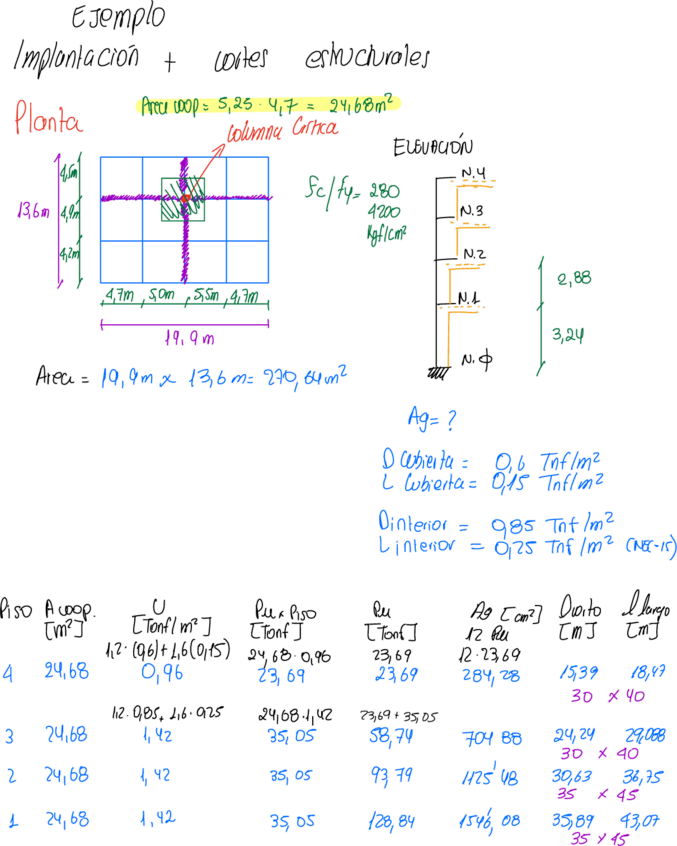 Ejemplo
Implantación + cortes estructurales
Area coop = 5,25 · 4,7 = 24,68m²
Planta
Columna Crítica
ELEVACIÓN
N.4
N.3
N.2
N.1
N.ϕ
fc/fy = 280
4200
Kgf/cm²
4,5m
4,9m
4,2m
13,6m
4,7m 5,0m 5,5m 4,7m
19,9m
2,88
3,24
Area = 19,9m x 13,6m = 270,64m²
Ag = ?
D Cubierta = 0,6 Tnf/m²
L Cubierta = 0,15 Tnf/m²
D interior = 0,85 Tnf/m²
L interior = 0,25 Tnf/m² (NEC-15)
Piso A coop. U Pu x Piso Pu Ag [cm²] Dcorto l largo
[m²] [Tonf/m²] [Tonf] [Tonf] 12 Pu [m] [m]
1,2·(0,6)+1,6(0,15) 24,68·0,96 23,69 12·23,69
4 24,68 0,96 23,69 23,69 284,28 15,39 18,47
30 x 40
1,2·0,85+1,6·0,25 24,68·1,42 23,69+35,05
3 24,68 1,42 35,05 58,74 704,88 24,24 29,088
30 x 40
2 24,68 1,42 35,05 93,79 1125,48 30,63 36,75
35 x 45
1 24,68 1,42 35,05 128,84 1546,08 35,89 43,07
35 x 45